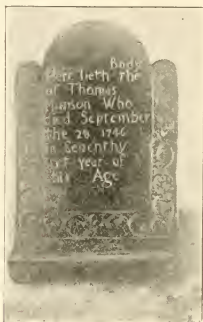 Body
Here lieth the
of Thomas
Munson Who
died September
the 28 1746
in Seaenthy
year of
his Age